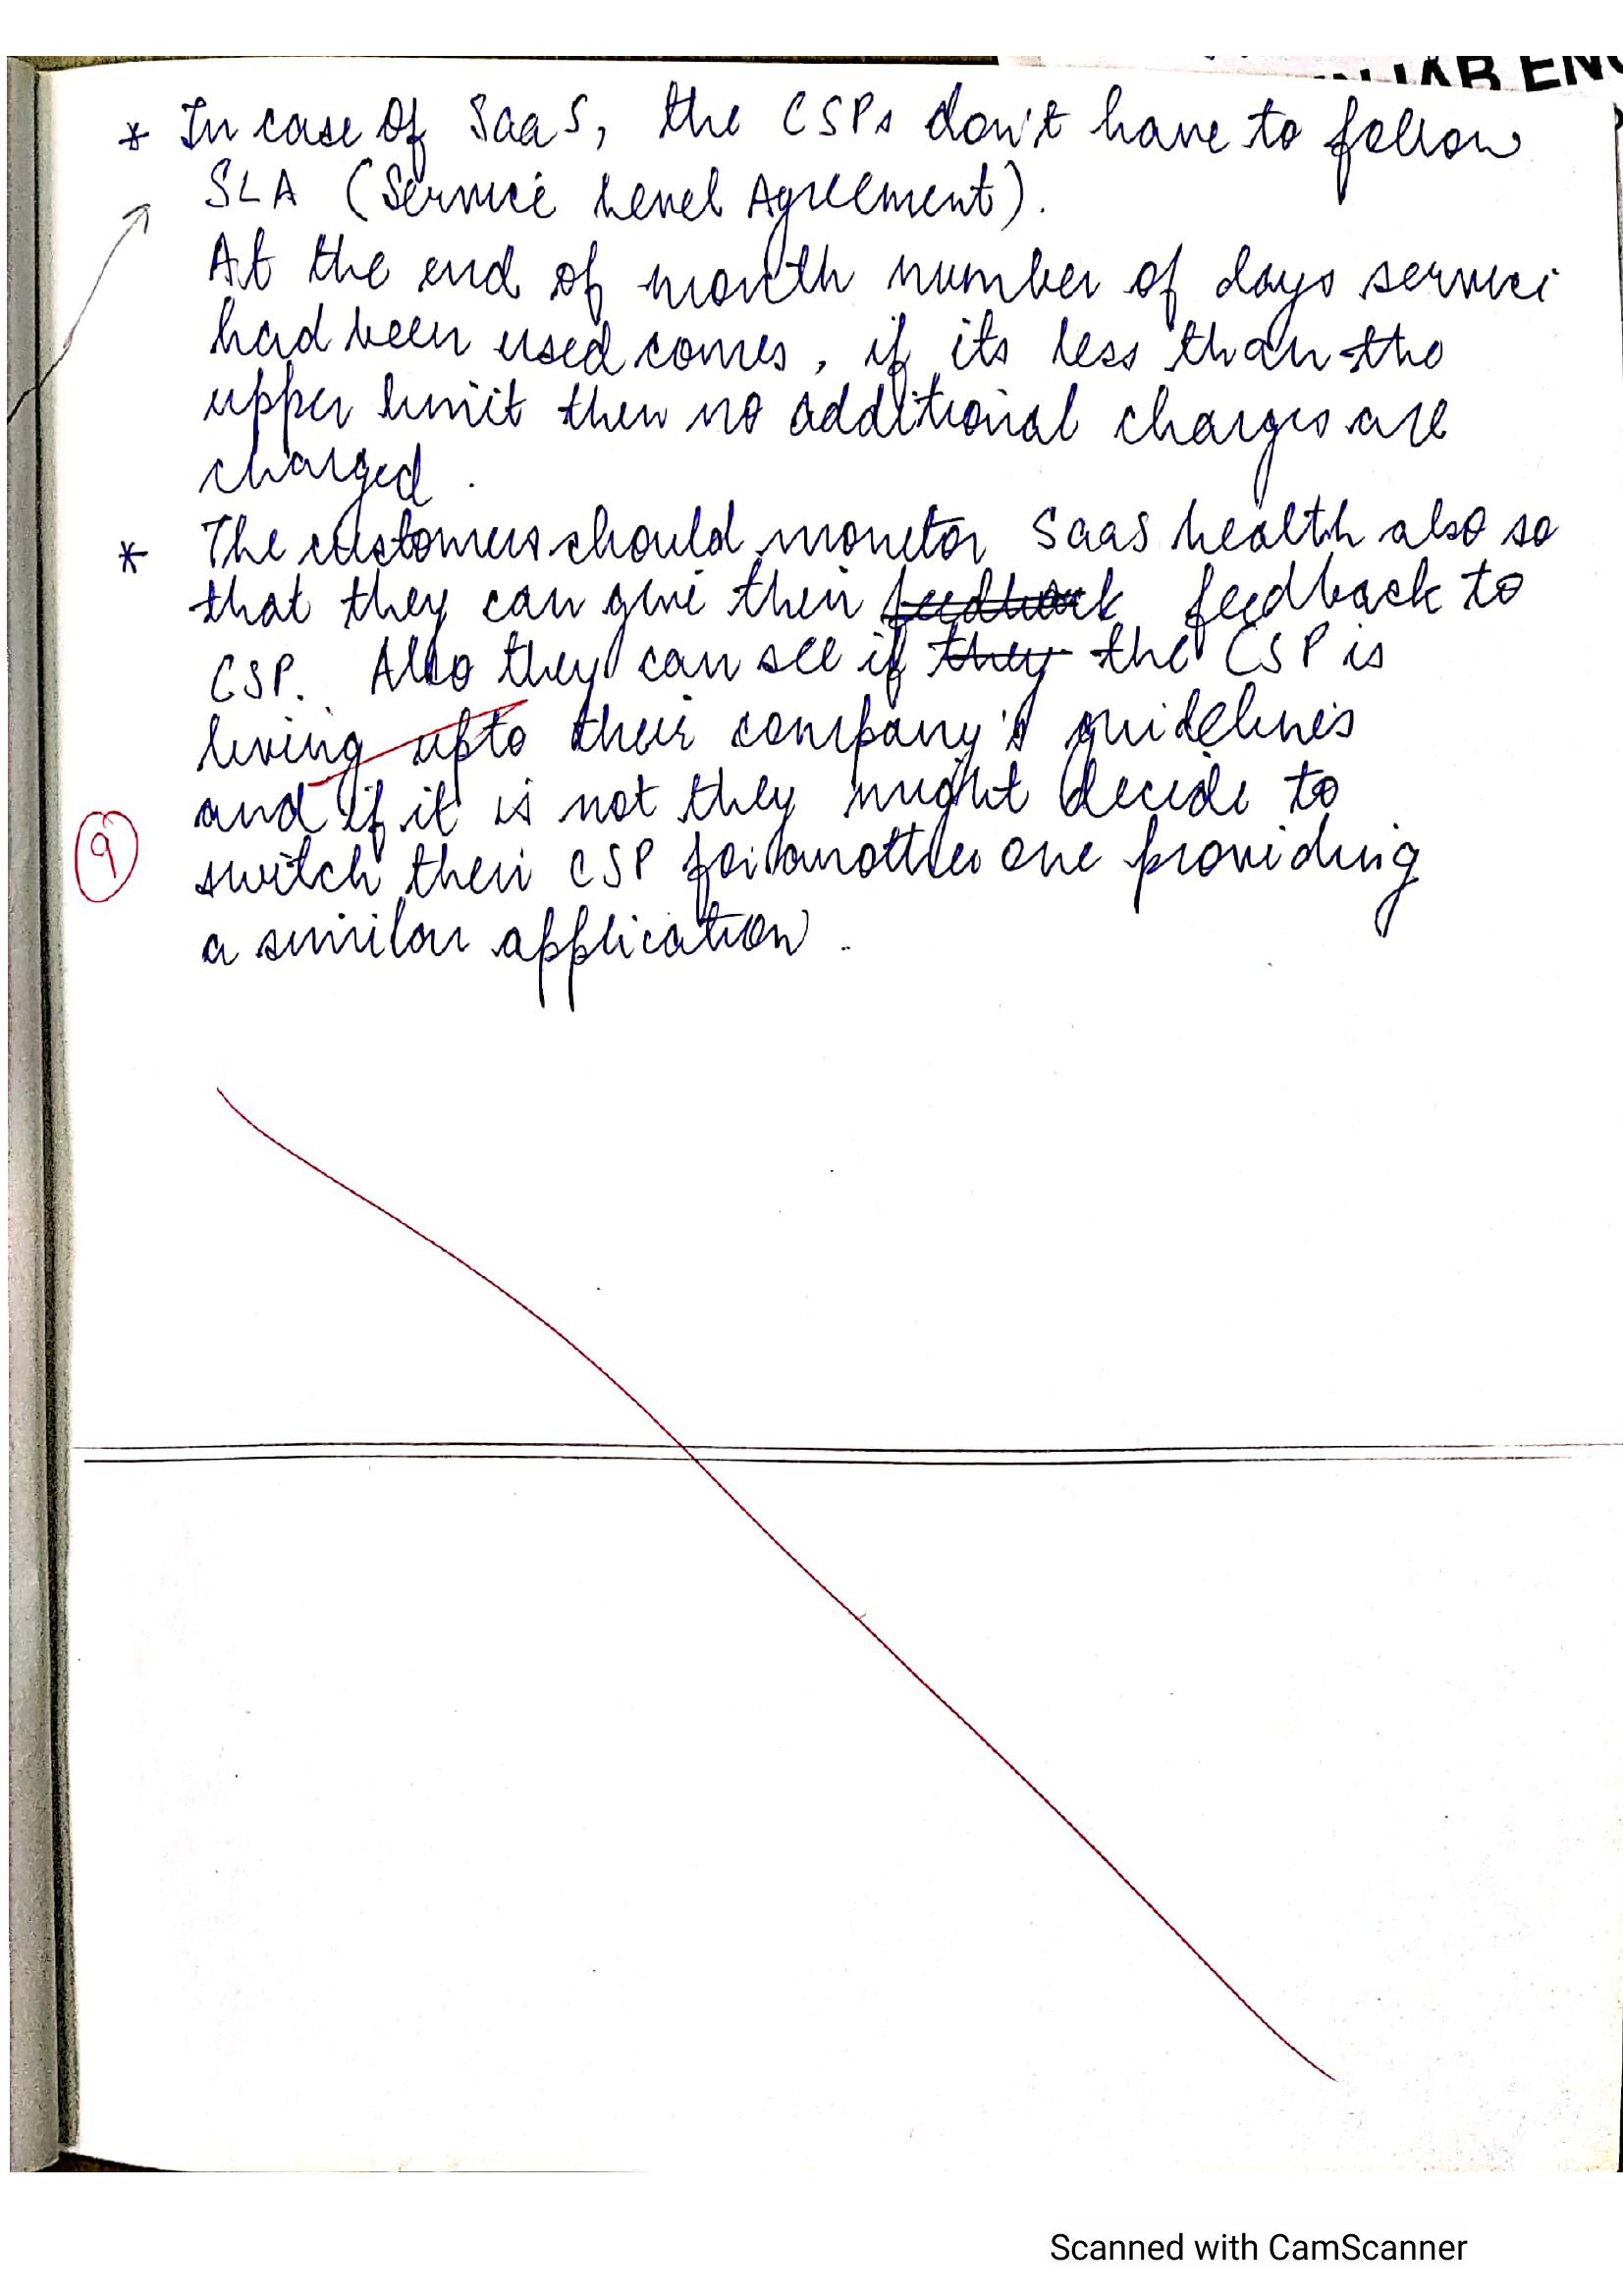 * In case Of SaaS, the CSPs don't have to follow
SLA (Service Level Agreement).
At the end of month number of days service
had been used comes, if its less than the
upper limit then no additional charges are
charged.
* The customers should monitor SaaS health also so
that they can give their feedback feedback to
CSP. Also they can see if they the CSP is
living upto their company's guidelines
and if it is not they might decide to
9
switch their CSP for another one providing
a similar application.
Scanned with CamScanner